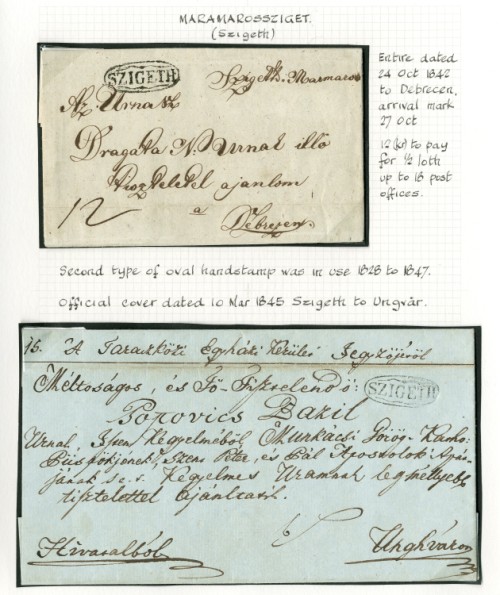 MARAMAROSSZIGET.
(Szigeth)
SZIGETH
Szigeth. Marmaros
Az Urnak
Dragata N. Urnak illő
Tisztelettel ajanlom
a
12 Debrezen.
Entire dated
24 Oct 1842
to Debrecen,
arrival mark
27 Oct
12 (kr) to pay
for ½ loth
up to 18 post
offices.
Second type of oval handstamp was in use 1828 to 1847.
Official cover dated 10 Mar 1845 Szigeth to Ungvár.
15. A Taraczközi Egyházi Kerület Jegyzőjéről
Méltoságos, és Fő Tisztelendő:
SZIGETH
Popovics Bazil
Urnak, Isten Kegyelméből Munkácsi Görög-Katho:
Püspökjének, Szent Péter, és Pál Apostolok
s. a. t. Kegyelmes Uramnak legmélyebb
tisztelettel ajánlva.
Hivatalból Unghváron